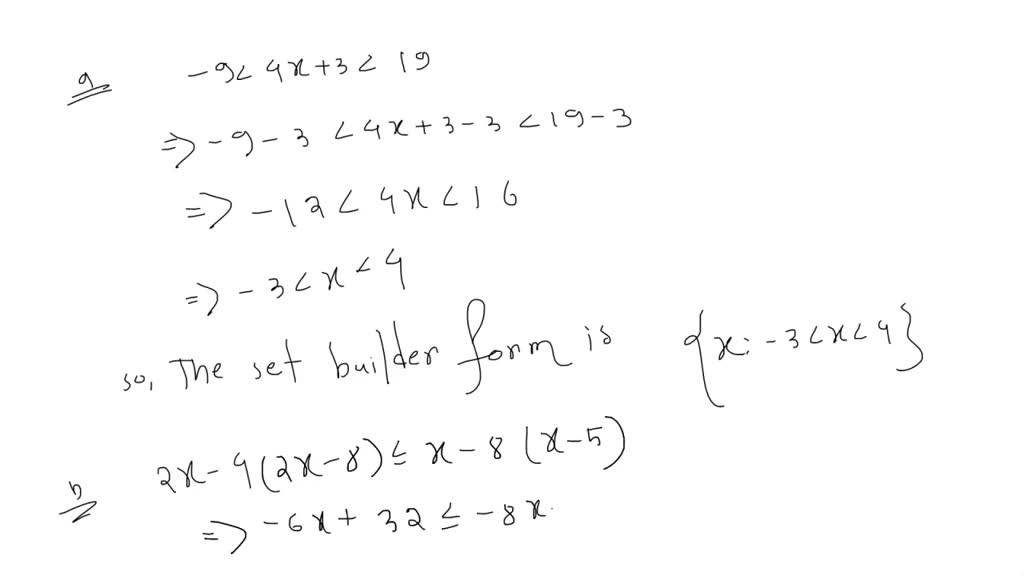 a -9 < 4x + 3 < 19
=> -9 - 3 < 4x + 3 - 3 < 19 - 3
=> -12 < 4x < 16
=> -3 < x < 4
so, The set builder form is {x: -3 < x < 4}
b 2x - 4(2x - 8) ≤ x - 8 (x - 5)
=> -6x + 32 ≤ -8x